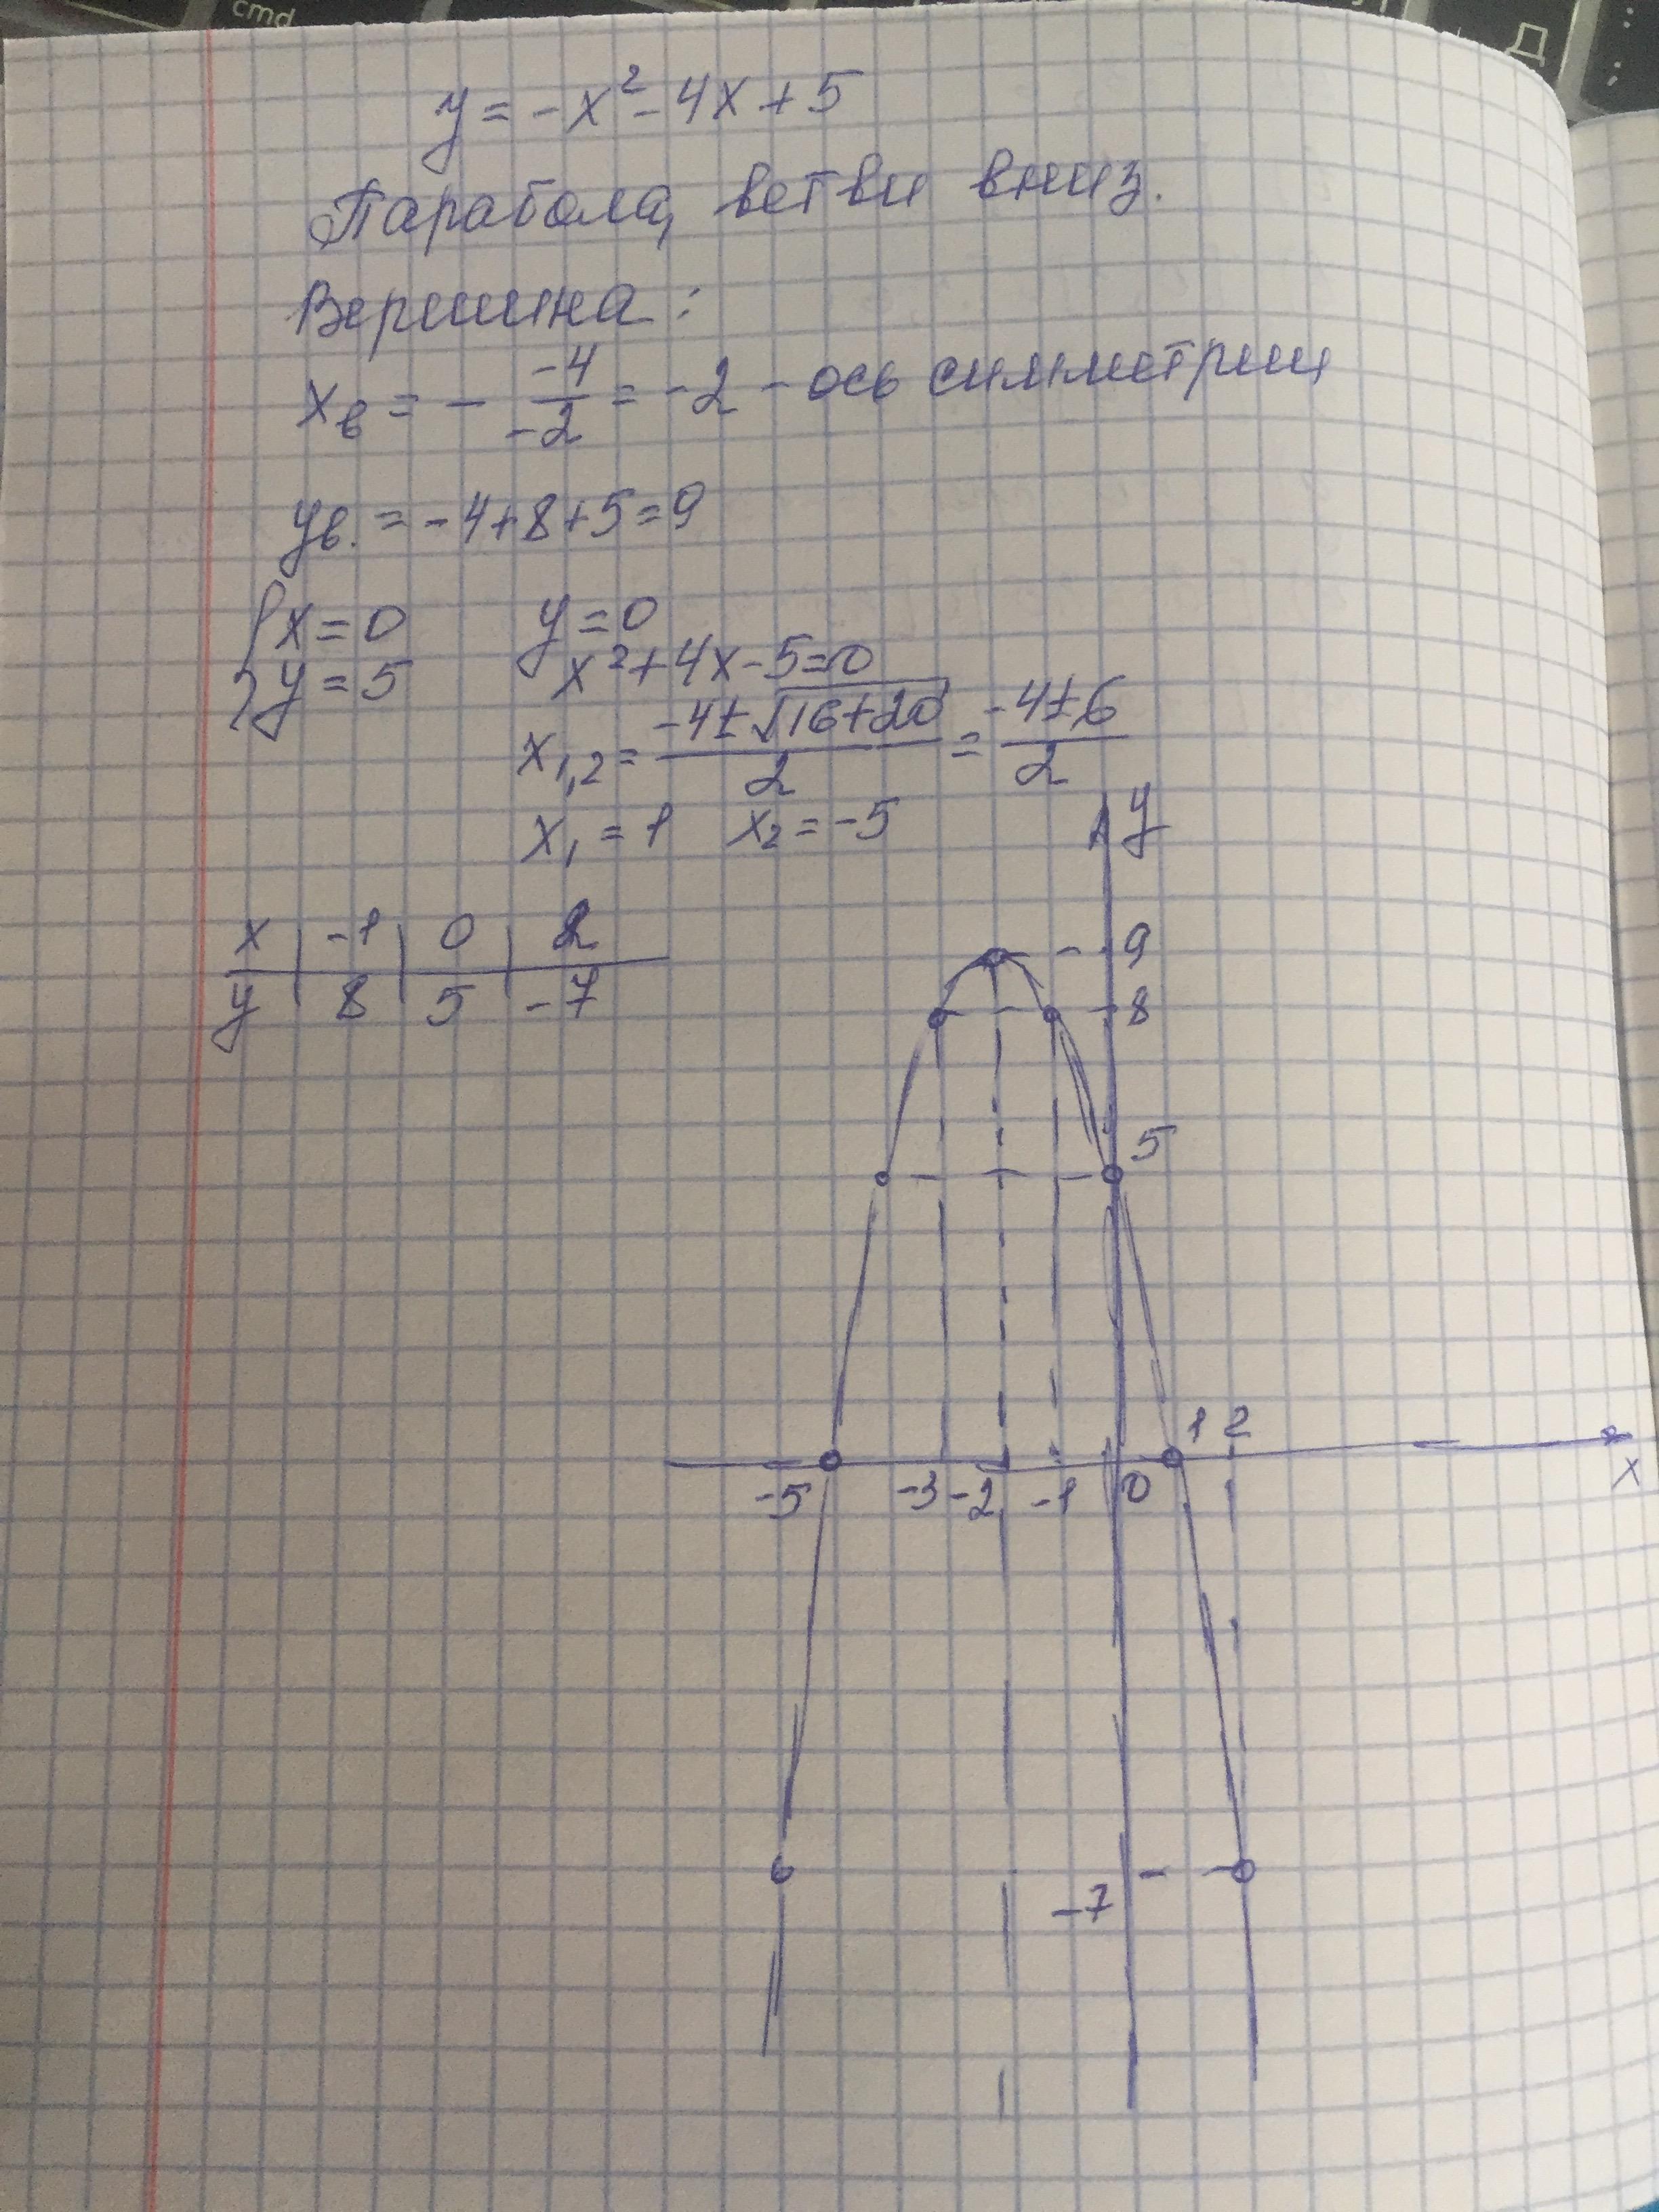 cmd
Д
y = -x² - 4x + 5
Парабола, ветви вниз.
Вершина:
xв = - -4/-2 = -2 - ось симметрии
yв. = -4+8+5=9
{ x = 0
y = 5
y = 0
x² + 4x - 5 = 0
x1,2 = (-4±√(16+20))/2 = (-4±6)/2
x1 = 1 x2 = -5
x | -1 | 0 | 2
y | 8 | 5 | -7
y
9
8
5
1 2
-5 -3 -2 -1 0 x
-7